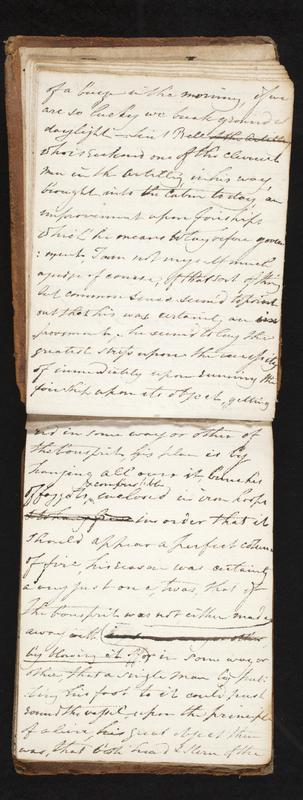 of a buoy in the morning, if we
are so lucky we break ground at
daylight — Lieut Bell of the Artillery
who is reckoned one of the cleverest
men in the artillery in his way
brought into the Cabin today, an
improvement upon fireships
which he means to lay before govern
:ment. I am not myself much
a judge of course, of that sort of thing
but common sense seemed to point
out that this was certainly an im
provement. he seemed to lay the
greatest stress upon the necessity
of immediately upon running the
fire ship upon its object, getting
rid in some way or other of
the bowsprit, his plan is by
hanging all over it, bunches
combustible
of faggots, enclosed in iron hoops
in order that it
should appear a perfect column
of fire, his reason was certainly
a very just one, twas, that if
the bowsprit was not either made
away with
by blowing it off, or in some way or
other, that a single man by put
ting his foot to it could push
round the vessel upon the principle
of a lever, his great object then
was, that both head & stern of the